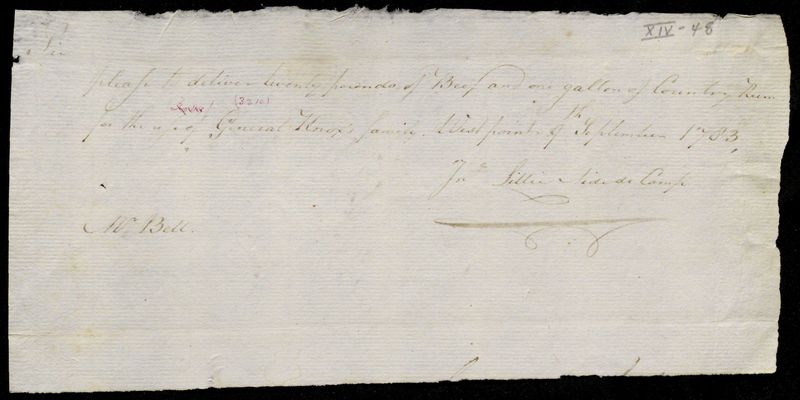 XIV-48
Sir
please to deliver twenty pounds of Beef and one gallon of Country Rum
(3210)
for the use of General Knox's family. West point 9th September 1783,
Jno Lillie Aide de Camp
Mr Bell.